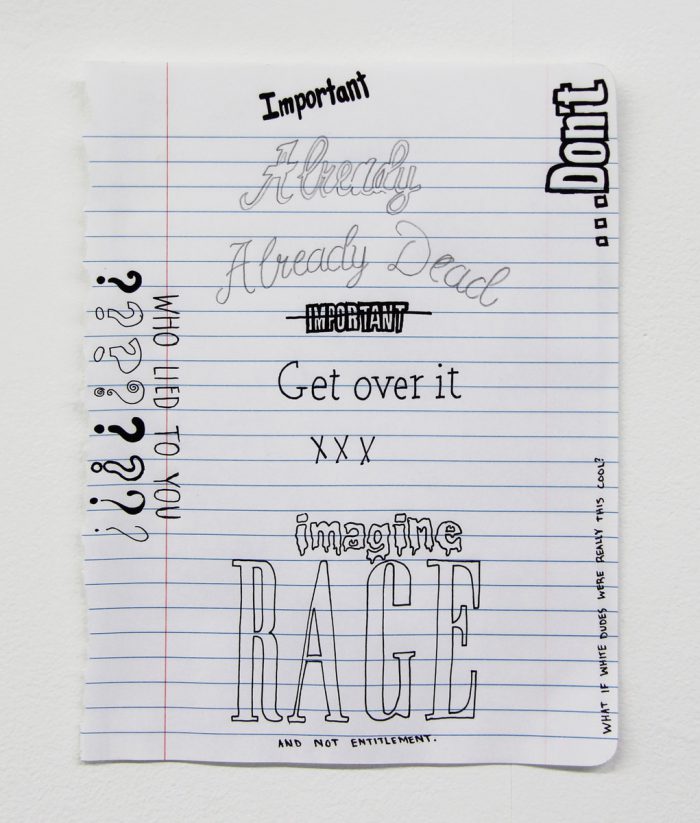 Important
...Don't
Already
Already Dead
IMPORTANT
Get over it
XXX
WHO LIED TO YOU
????????
imagine
RAGE
AND NOT ENTITLEMENT.
WHAT IF WHITE DUDES WERE REALLY THIS COOL?